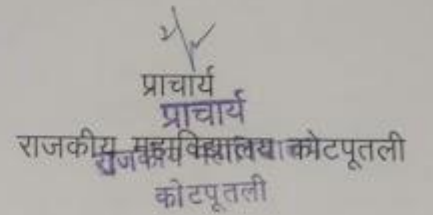 प्राचार्य
प्राचार्य
राजकीय महाविद्यालय कोटपूतली
राजकीय महाविद्यालय
कोटपूतली